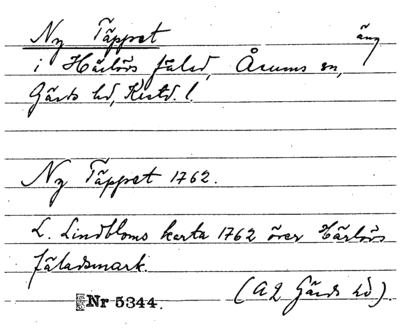 Ny Täppet äng
i Härlövs fälad, Åsums sn,
Gärds hd, Kristd. l.
Ny Täppet 1762.
L. Lindbloms karta 1762 över Härlövs
fäladsmark.
Nr 5344. (A2 Gärds hd).